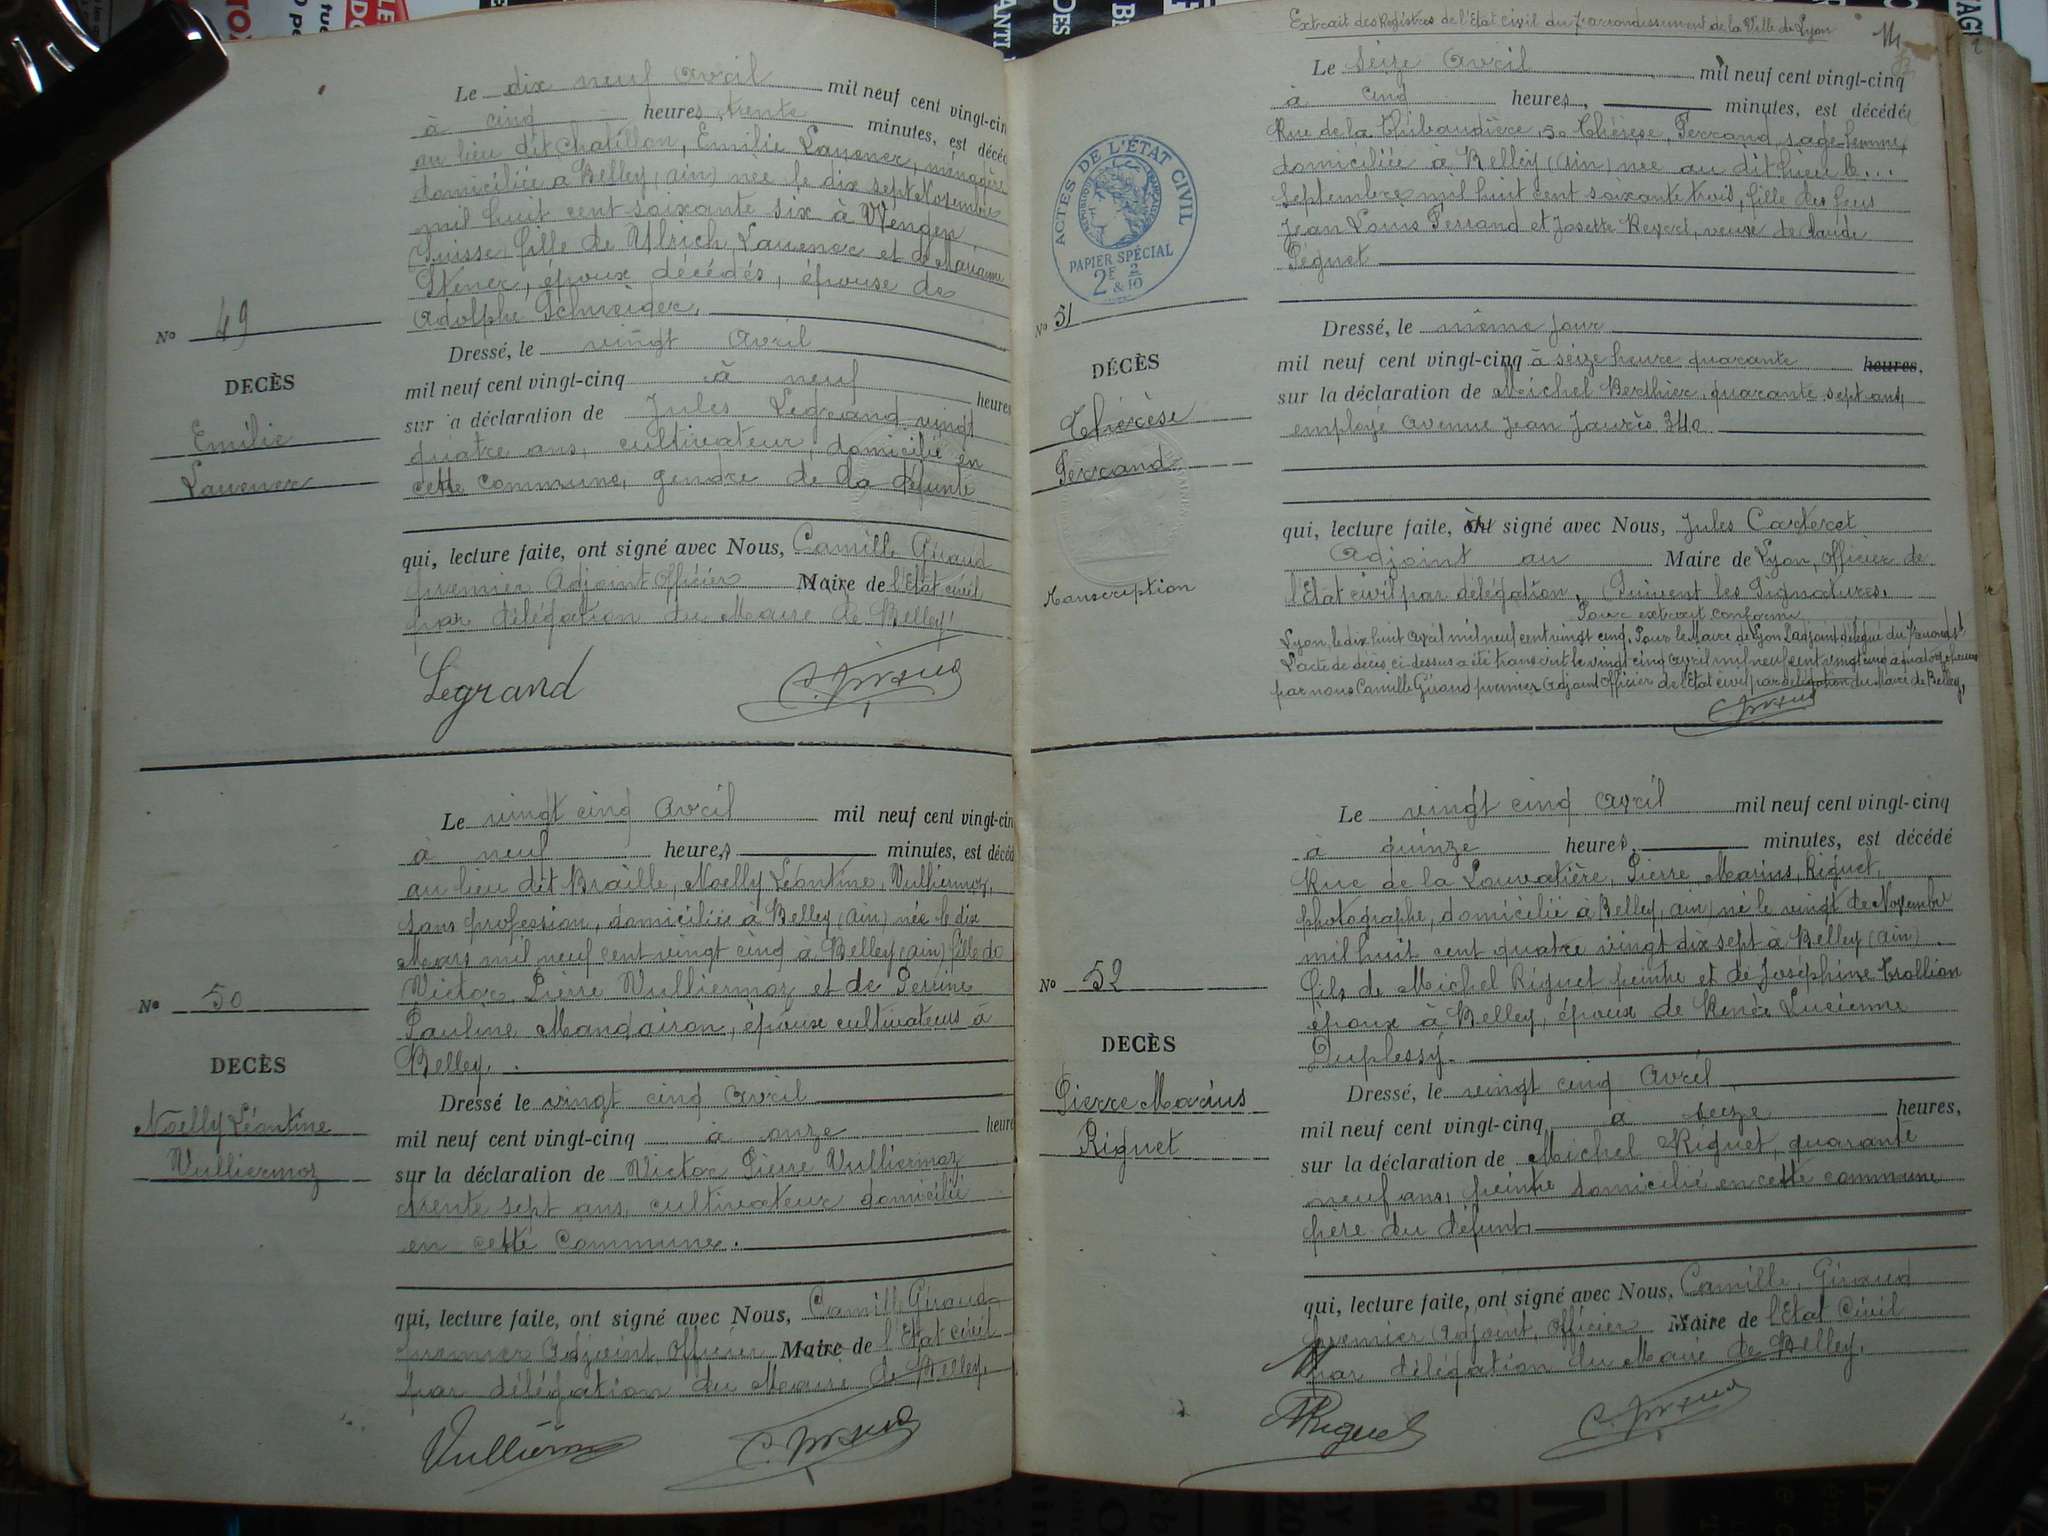 Le dix neuf avril mil neuf cent vingt-cin
à cinq heures trente minutes, est décéd
au lieu dit Chatillon, Emilie Lauener, ménagère
domiciliée à Belley (ain) née le dix sept Novembre
mil huit cent soixante six à Wengen
(Suisse) fille de Ulrich Lauener et de Marianne
époux décédés, épouse de
Adolphe Schneider.
No 49
DECÈS
Emilie
Lauener
Dressé, le vingt avril
mil neuf cent vingt-cinq à neuf heures
sur a déclaration de Jules Legrand vingt
quatre ans, cultivateur, domicilié en
cette commune, gendre de la défunte
qui, lecture faite, ont signé avec Nous, Camille Giraud
premier Adjoint Officier Maire de l'Etat civil
par délégation du Maire de Belley!
Legrand
Le vingt cinq avril mil neuf cent vingt-cin
à neuf heures minutes, est décéd
au lieu dit Braille, Noelly Léontine, Vulliermoz,
sans profession, domiciliée à Belley (ain) née le dix
Mars mil neuf cent vingt cinq à Belley (ain) fille de
Victor Pierre Vulliermoz et de Perrine
Pauline Mangairon, époux cultivateurs à
Belley.
No 50
DECÈS
Noelly Léontine
Vulliermoz
Dressé le vingt cinq avril
mil neuf cent vingt-cinq à onze heure
sur la déclaration de Victor Pierre Vulliermoz
trente sept ans, cultivateur domicilié
en cette commune.
qui, lecture faite, ont signé avec Nous, Camille Giraud
premier Adjoint Officier Maire de l'Etat civil
par délégation du Maire de Belley.
Extrait des Registres de l'Etat Civil du 7 arrondissement de la Ville de Lyon
Le Seize avril mil neuf cent vingt-cinq
à cinq heures, minutes, est décédée
Rue de la Thibaudière, 50 Thérèse, Ferrand, sage-femme,
domiciliée à Belley (ain) née au dit lieu le...
Septembre mil huit cent soixante trois, fille des feus
Jean Louis Ferrand et Josette Reyert, veuve de Claude
Péguet
ACTES DE L'ÉTAT CIVIL
PAPIER SPÉCIAL
2F 2
& 10
No 51
DÉCÈS
Thérèse
Ferrand
Transcription
Dressé, le même jour
mil neuf cent vingt-cinq à seize heure quarante heures,
sur la déclaration de Michel Berthier, quarante sept ans,
employé avenue Jean Jaurès 340
qui, lecture faite, signé avec Nous, Jules Carteret
Adjoint au Maire de Lyon, Officier de
l'Etat civil par délégation, Suivent les Signatures.
Pour extrait conforme
Lyon, le dix huit avril mil neuf cent vingt cinq. Pour le Maire de Lyon L'adjoint délégué du 7 arrondst
L'acte de décès ci-dessus a été transcrit le vingt cinq avril mil neuf cent vingt cinq à quatorze heures
par nous Camille Giraud premier adjoint Officier de l'Etat civil par délégation du Maire de Belley,
Le vingt cinq avril mil neuf cent vingt-cinq
à quinze heures, minutes, est décédé
Rue de la Louvatière, Pierre Marius, Riguet,
photographe, domicilié à Belley, (ain) né le vingt de Novembre
mil huit cent quatre vingt dix sept à Belley (ain)
fils de Michel Riguet peintre et de Joséphine Trollion
époux à Belley, époux de Renée Lucienne
Duplessy.
No 52
DECÈS
Pierre Marius
Riguet
Dressé, le vingt cinq avril
mil neuf cent vingt-cinq, à seize heures,
sur la déclaration de Michel Riguet, quarante
neuf ans, peintre domicilié en cette commune
père du défunt.
qui, lecture faite, ont signé avec Nous, Camille, Giraud
premier adjoint, officier Maire de l'Etat Civil
par délégation du Maire de Belley.